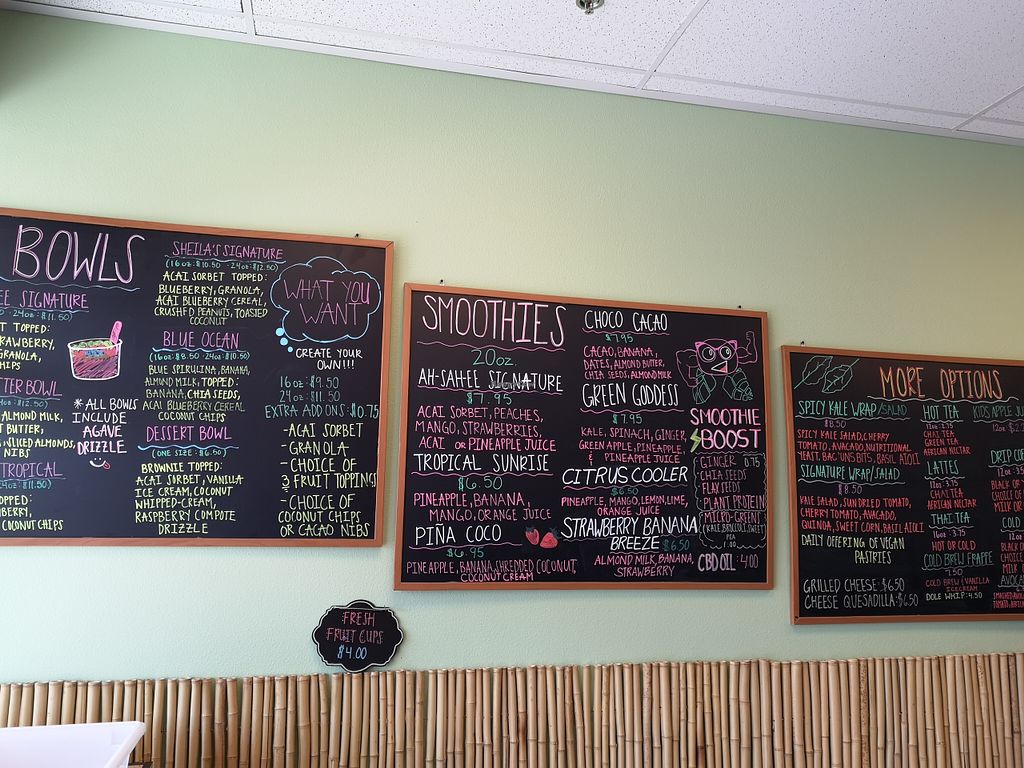 BOWLS
SIGNATURE
24oz: $11.50)
TOPPED:
GRANOLA,
BOWL
ALMOND MILK,
BUTTER,
SLICED ALMONDS,
NIBS
TROPICAL
COCONUT CHIPS
* ALL BOWLS
INCLUDE
AGAVE
DRIZZLE
SHEILA'S SIGNATURE
(16oz: $10.50 - 24oz: $12.50)
ACAI SORBET TOPPED:
BLUEBERRY, GRANOLA,
ACAI BLUEBERRY CEREAL,
CRUSHED PEANUTS, TOASTED
COCONUT
BLUE OCEAN
(16oz: $8.50 - 24oz: $10.50)
BLUE SPIRULINA, BANANA,
ALMOND MILK, TOPPED:
BANANA, CHIA SEEDS,
ACAI BLUEBERRY CEREAL
COCONUT CHIPS
DESSERT BOWL
(ONE SIZE: $6.50)
BROWNIE TOPPED:
ACAI SORBET, VANILLA
ICE CREAM, COCONUT
WHIPPED-CREAM,
RASPBERRY COMPOTE
DRIZZLE
WHAT YOU
WANT
CREATE YOUR
OWN!!!
16oz $9.50
24oz $11.50
EXTRA ADD ONS: $0.75
- ACAI SORBET
- GRANOLA
- CHOICE OF
3 FRUIT TOPPINGS
- CHOICE OF
COCONUT CHIPS
OR CACAO NIBS
SMOOTHIES
20oz
AH-SAH-EE SIGNATURE
$7.95
ACAI SORBET, PEACHES,
MANGO, STRAWBERRIES,
ACAI OR PINEAPPLE JUICE
TROPICAL SUNRISE
$6.50
PINEAPPLE, BANANA,
MANGO, ORANGE JUICE
PIÑA COCO
$6.95
PINEAPPLE, BANANA, SHREDDED COCONUT,
COCONUT CREAM
CHOCO CACAO
$7.95
CACAO, BANANA,
DATES, ALMOND BUTTER,
CHIA SEEDS, ALMOND MILK
GREEN GODDESS
$7.95
KALE, SPINACH, GINGER,
GREEN APPLE, PINEAPPLE,
& PINEAPPLE JUICE
CITRUS COOLER
$6.50
PINEAPPLE, MANGO, LEMON, LIME,
ORANGE JUICE
STRAWBERRY BANANA
BREEZE $6.50
ALMOND MILK, BANANA,
STRAWBERRY
SMOOTHIE
BOOST
GINGER 0.75
CHIA SEEDS
FLAX SEEDS
PLANT PROTEIN
MICRO-GREEN
KALE, BROCCOLI, SWEET
PEA
CBD OIL: 4.00
MORE OPTIONS
SPICY KALE WRAP/SALAD
$8.50
SPICY KALE SALAD, CHERRY
TOMATO, AVOCADO, NUTRITIONAL
YEAST, BAC'UNS BITS, BASIL AIOLI
SIGNATURE WRAP/SALAD
$8.50
KALE SALAD, SUNDRIED TOMATO,
CHERRY TOMATO, AVOCADO,
QUINOA, SWEET CORN, BASIL AIOLI
DAILY OFFERING OF VEGAN
PASTRIES
GRILLED CHEESE: $6.50
CHEESE QUESADILLA: $6.50
HOT TEA
CHAI TEA
GREEN TEA
AFRICAN NECTAR
LATTES
12oz 3.75
CHAI TEA
AFRICAN NECTAR
THAI TEA
16oz 3.75
HOT OR COLD
COLD BREW FRAPPE
7.50
COLD BREW & VANILLA
ICE CREAM
DOLE WHIP: 4.50
KIDS APPLE
12oz
DRIP
BLACK OR
CHOICE
MILK OR
COLD
BLACK
CHOICE
MILK
FRESH
FRUIT CUPS
$4.00